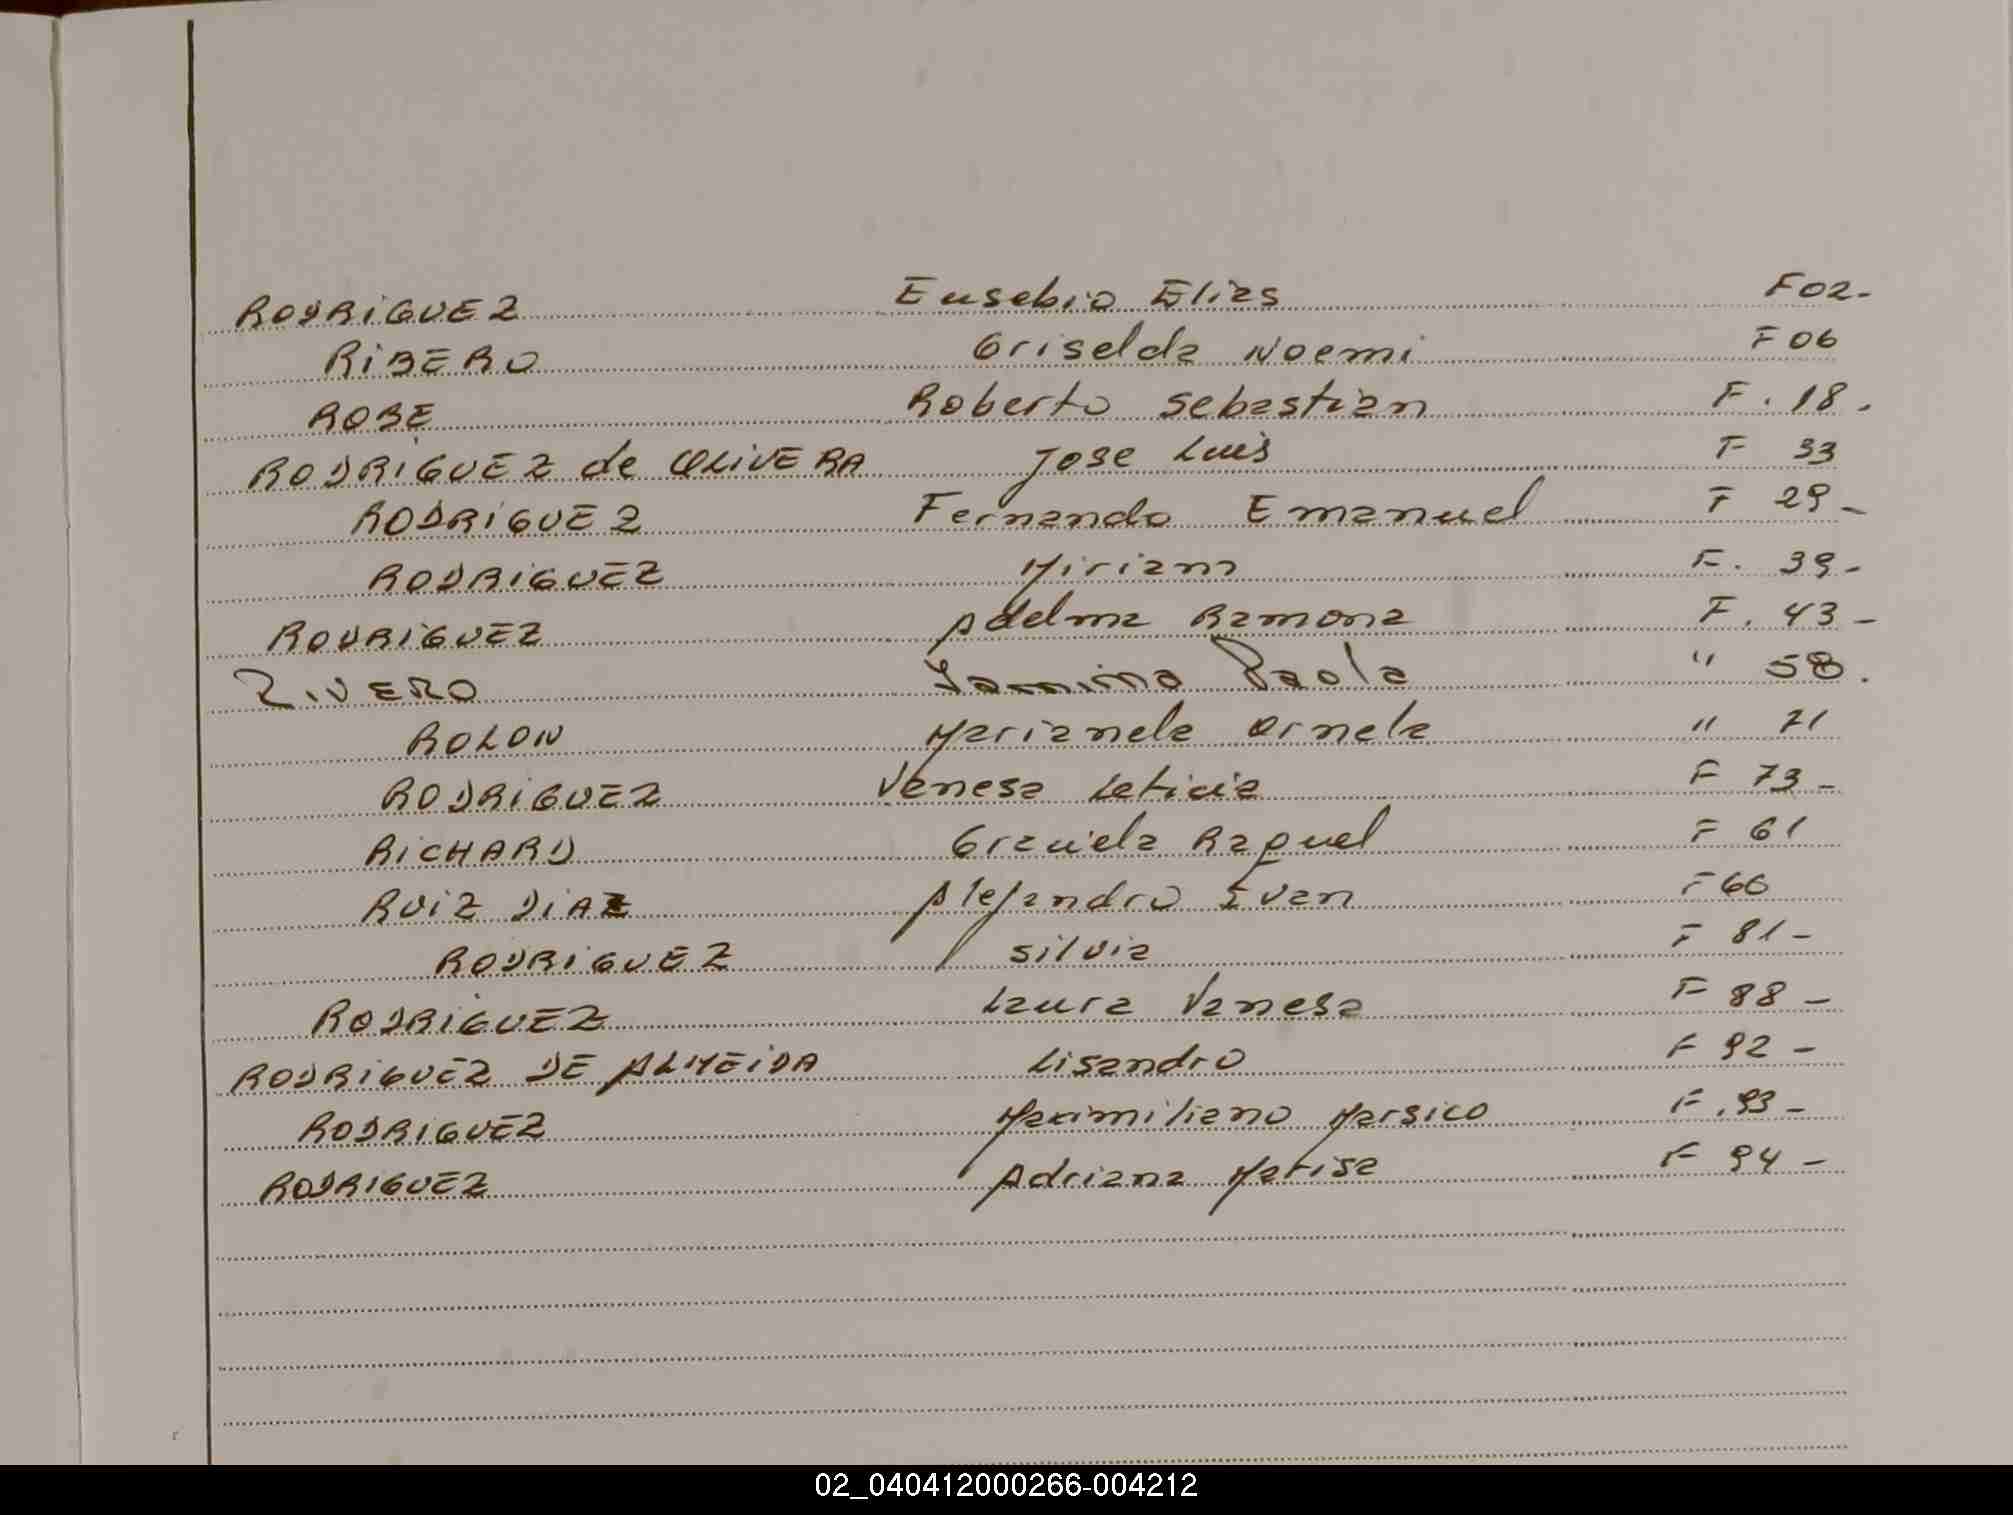 RODRIGUEZ Eusebio Elias F02-
RIBERO Griselda Noemi F 06
ROBE Roberto Sebastian F. 18.
RODRIGUEZ de OLIVERA Jose Luis F 33
RODRIGUEZ Fernando Emanuel F 29-
RODRIGUEZ Miriam F. 39-
RODRIGUEZ Adelma Ramona F. 43-
RIVERO Paola " 58.
ROLON Marianela Ornela " 71
RODRIGUEZ Vanesa Leticia F 73-
RICHARD Graciela Raquel F 61
RUIZ DIAZ Alejandro Ivan F 66
RODRIGUEZ Silvia F 81-
RODRIGUEZ Laura Vanesa F 88-
RODRIGUEZ DE ALMEIDA Lisandro F 92-
RODRIGUEZ Maximiliano Marsico F. 93-
RODRIGUEZ Adriana Marisa F 94-
02_040412000266-004212